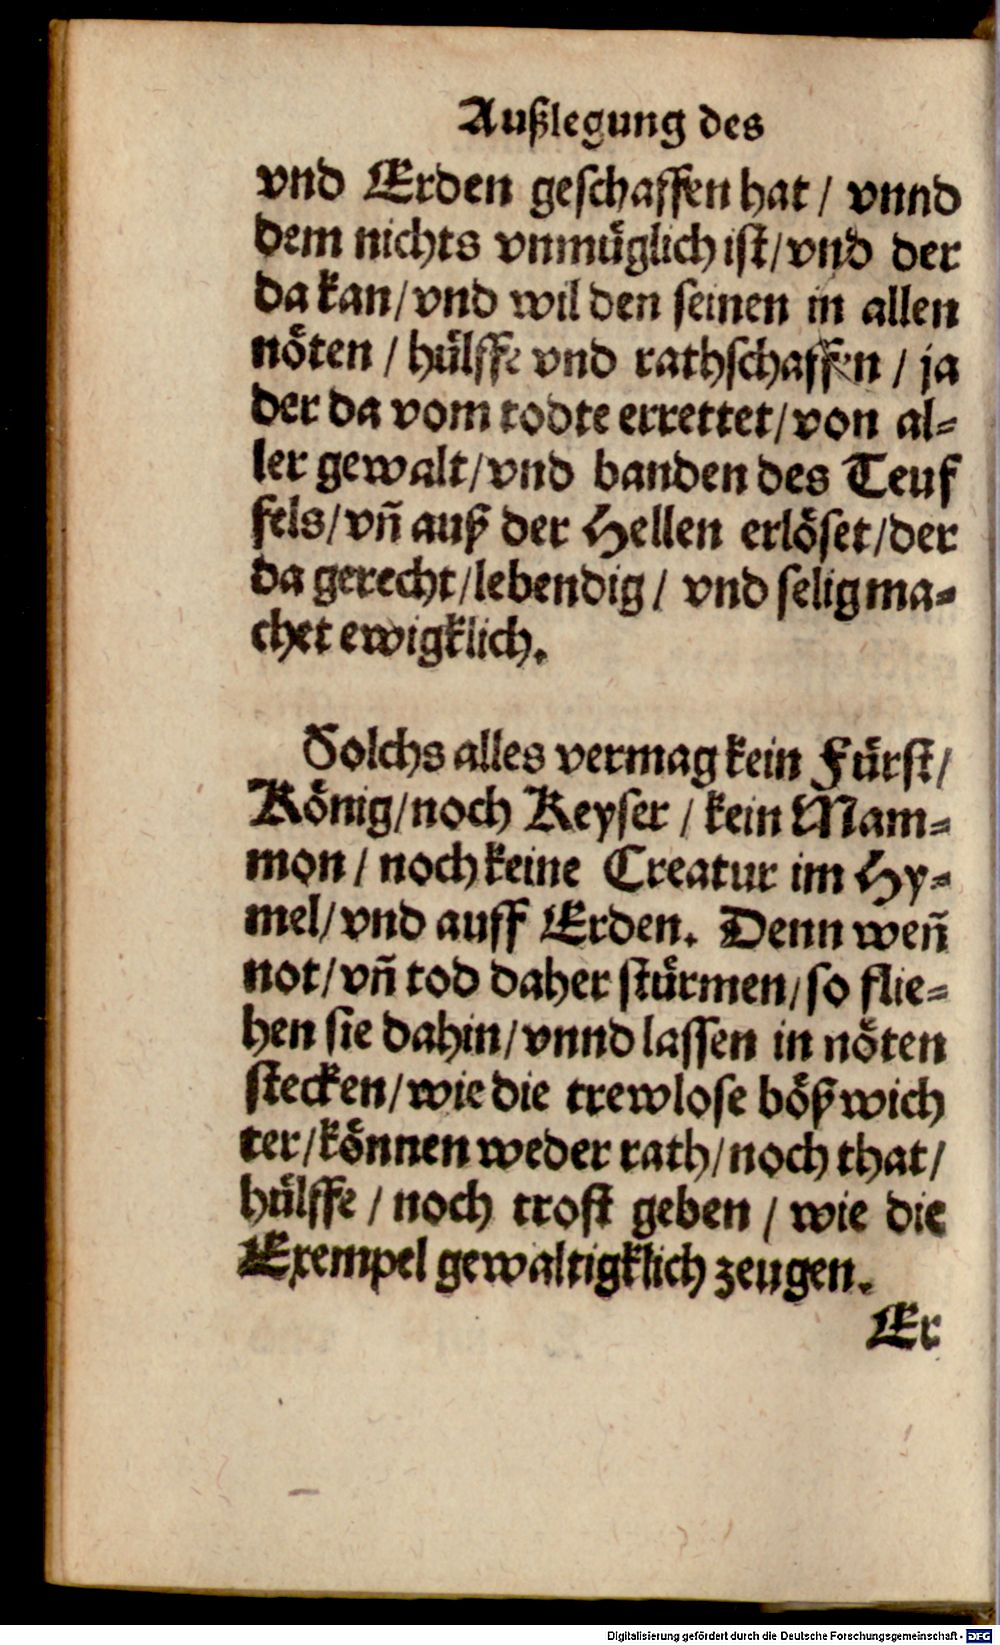 Außlegung des
vnd Erden geschaffen hat / vnnd
dem nichts vnmüglich ist/vnd der
da kan/vnd wil den seinen in allen
nöten / hülffe vnd rathschaffen / ja
der da vom todte errettet/von al=
ler gewalt/vnd banden des Teuf
fels/vñ auß der Hellen erlöset/der
da gerecht/lebendig / vnd selig ma=
chet ewigklich.
Solchs alles vermag kein Fürst/
König/noch Keyser / kein Mam=
mon / noch keine Creatur im Hy=
mel/vnd auff Erden. Denn weñ
not/vñ tod daher stürmen/so flie=
hen sie dahin/vnnd lassen in nöten
stecken/wie die trewlose bößwich
ter/können weder rath/noch that/
hülffe / noch trost geben / wie die
Exempel gewaltigklich zeugen.
Er
Digitalisierung gefördert durch die Deutsche Forschungsgemeinschaft - DFG